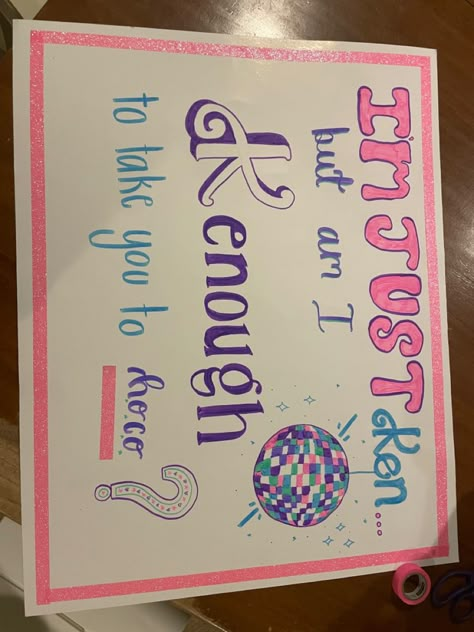 I'M JUST Ken...
but am I
Kenough
to take you to hoco?